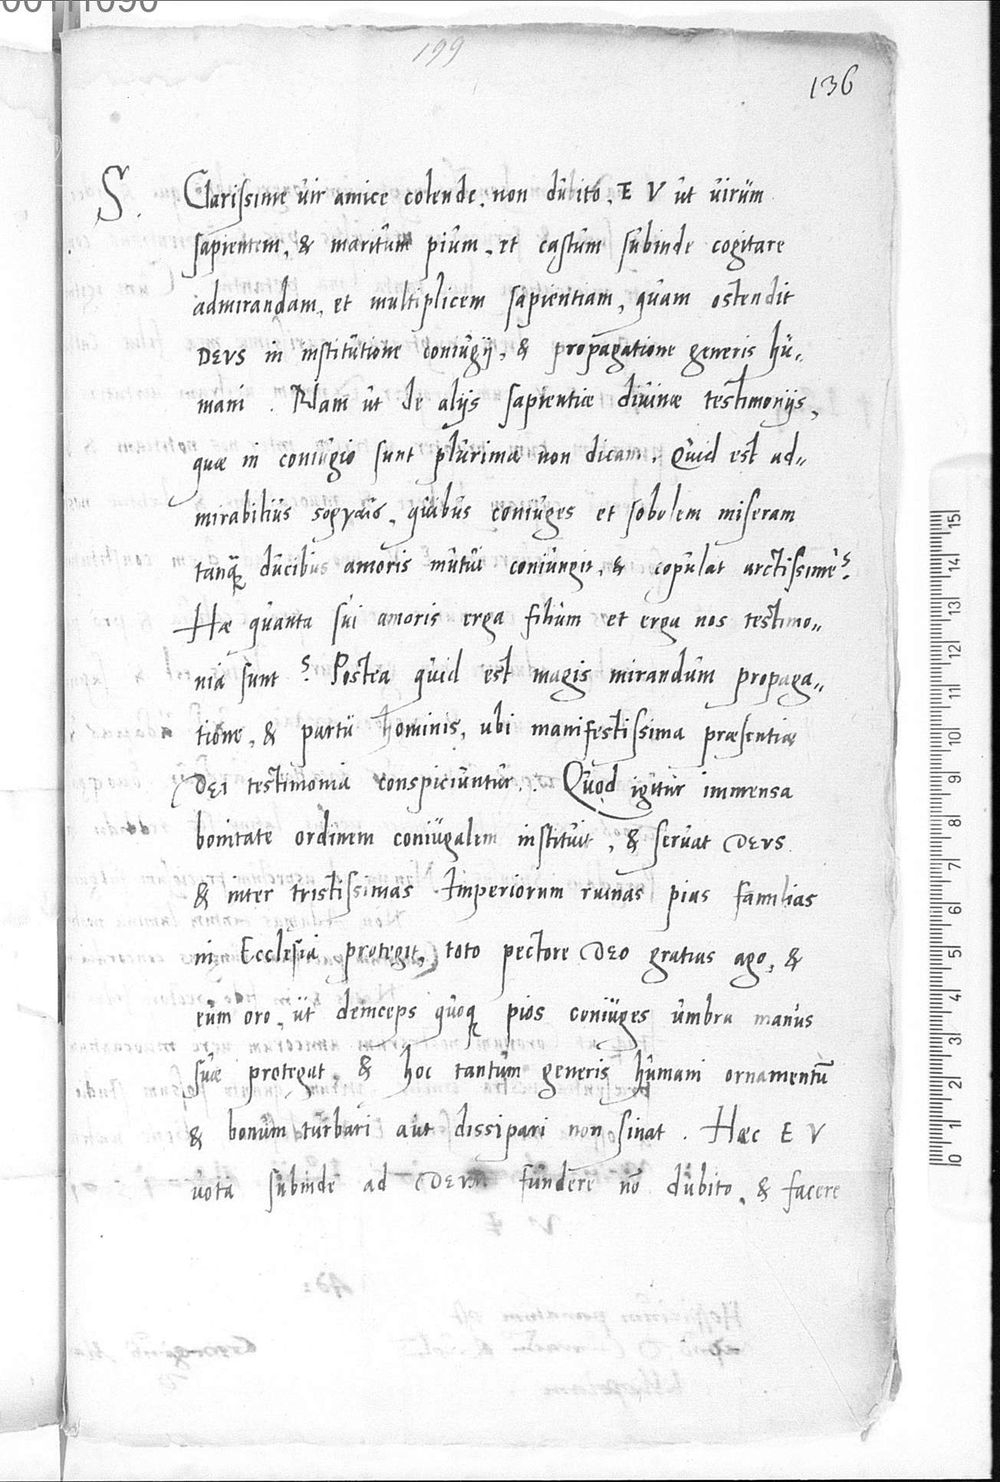 199
136
S. Clarissime vir amice colende. non dubito, E V ut virum
sapientem, & maritum pium, et castum subinde cogitare
admirandam, et multiplicem sapientiam, quam ostendit
DEUS in institutione coniugij, & propagatione generis hu„
mani. Nam ut de alijs sapientiæ divinæ testimonijs,
quæ in coniugio sunt plurimæ non dicam. Quid est ad„
mirabilius quibus coniuges et sobolem miseram
tanq̃ ducibus amoris mutui coniungit, & copulat arctissime?
Hæ quanta sui amoris erga filium et erga nos testimo„
nia sunt? Postea quid est magis mirandum propaga„
tione, & partu hominis, ubi manifestissima præsentiæ
DEI testimonia conspiciuntur. Quod igitur immensa
bonitate ordinem coniugalem instituit, & servat DEUS
& inter tristissimas Imperiorum ruinas pias familias
in Ecclesia protegit, toto pectore DEO gratias ago, &
eum oro, ut deinceps quoq pios coniuges umbra manus
suæ protegat, & hoc tantum generis humani ornamentũ
& bonum turbari aut dissipari non sinat. Hæc E V
vota subinde ad DEUM fundere nõ dubito, & facere
0 1 2 3 4 5 6 7 8 9 10 11 12 13 14 15